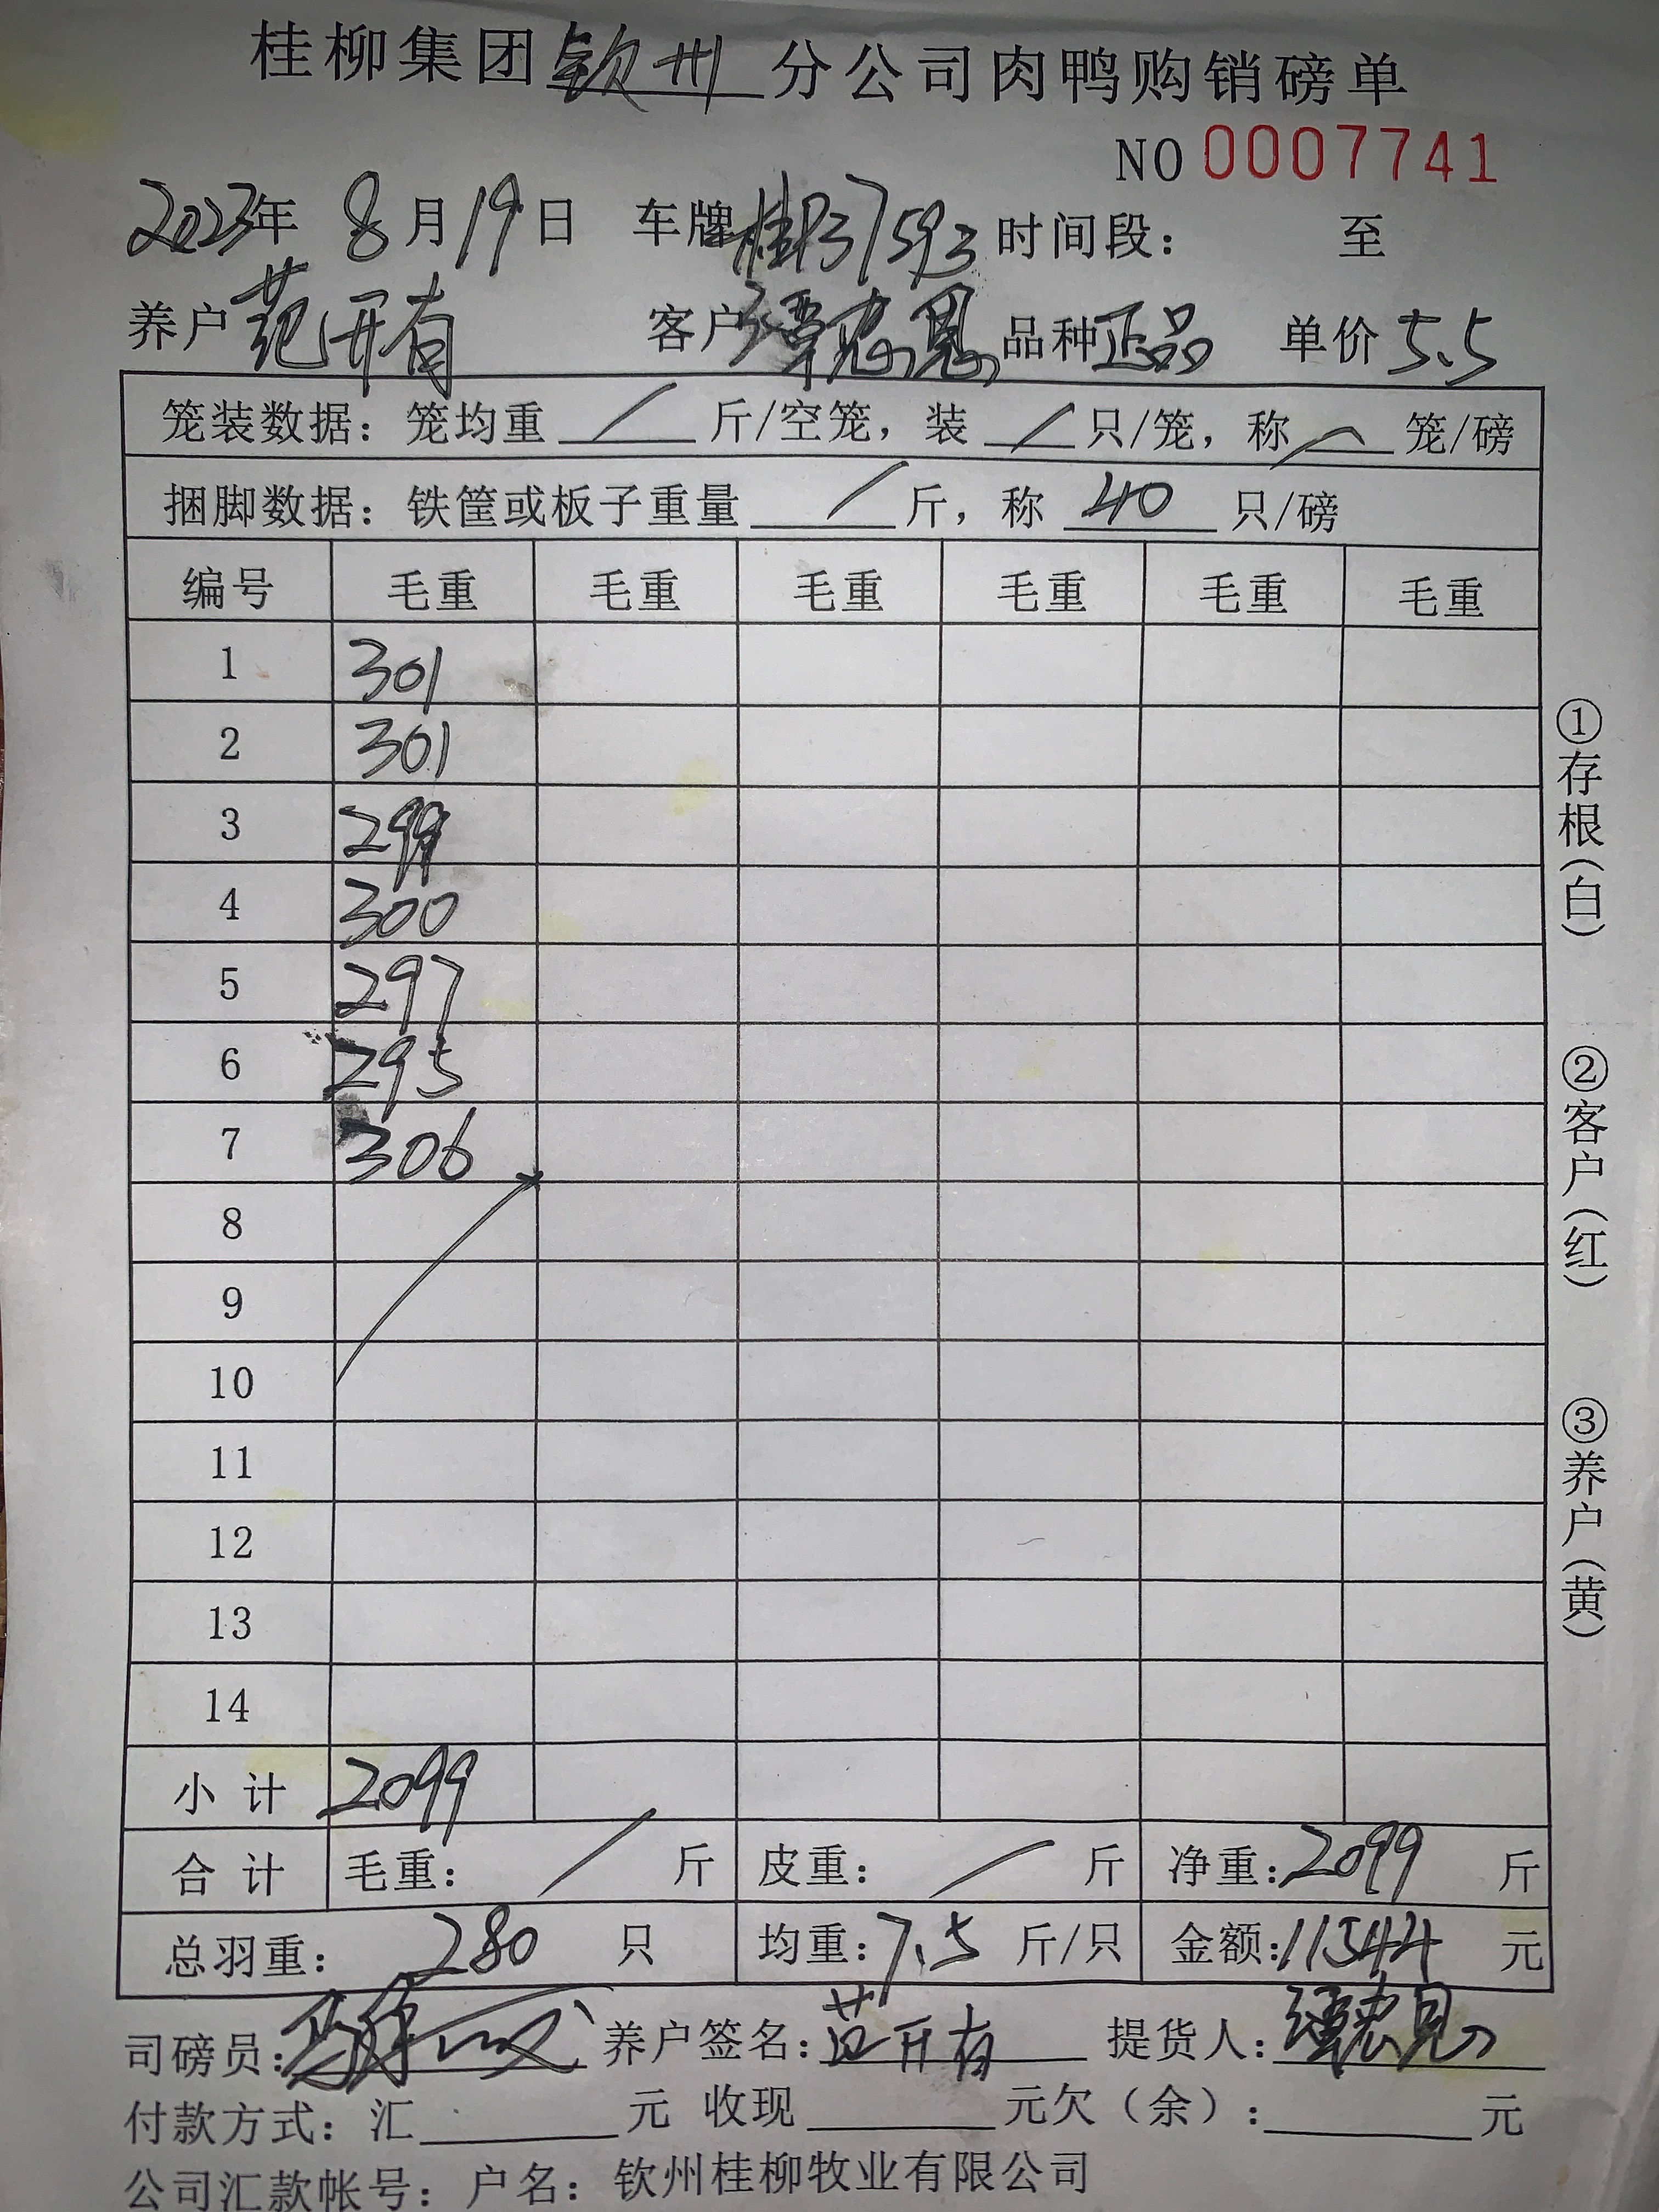 桂柳集团钦州分公司肉鸭购销磅单
NO 0007741
2023年 8月19日 车牌桂P37593 时间段： 至
养户范开有 客户谭忠恩 品种正品 单价5.5
笼装数据：笼均重 / 斤/空笼，装 / 只/笼，称 笼/磅
捆脚数据：铁筐或板子重量 / 斤，称 40 只/磅
编号 毛重 毛重 毛重 毛重 毛重 毛重
1 301
2 301
3 299
4 300
5 297
6 295
7 306
8
9
10
11
12
13
14
小计 2099
合计 毛重： / 斤 皮重： / 斤 净重：2099 斤
总羽重： 280 只 均重：7.5 斤/只 金额：11544 元
司磅员： 养户签名：范开有 提货人：谭忠恩
付款方式：汇 元 收现 元欠（余）： 元
公司汇款帐号：户名：钦州桂柳牧业有限公司
①存根（白）
②客户（红）
③养户（黄）